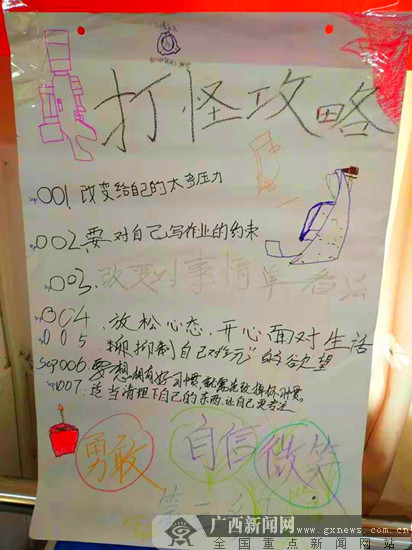 打怪攻略
001. 改变给自己的太多压力
002. 要对自己写作业的约束
003. 改变对事情单一看法
004. 放松心态，开心面对生活
005 抑制自己对 的欲望
Sep006 要想拥有好习惯，
007. 适当清理下自己的东西，让自己更
勇敢
自信
微笑
第 组
广西新闻网
www.gxnews.com.cn
全国重点新闻网站